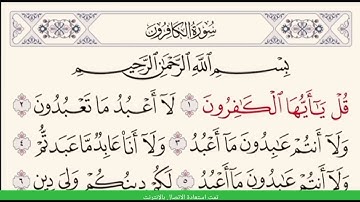 سُورَةُ الكَافِرُونَ
بِسْمِ ٱللَّهِ ٱلرَّحْمَٰنِ ٱلرَّحِيمِ
قُلْ يَٰٓأَيُّهَا ٱلْكَٰفِرُونَ ١ لَآ أَعْبُدُ مَا تَعْبُدُونَ ٢
وَلَآ أَنتُمْ عَٰبِدُونَ مَآ أَعْبُدُ ٣ وَلَآ أَنَا۠ عَابِدٌ مَّا عَبَدتُّمْ ٤
وَلَآ أَنتُمْ عَٰبِدُونَ مَآ أَعْبُدُ ٥ لَكُمْ دِينُكُمْ وَلِىَ دِينِ ٦
تمت استعادة الاتصال بالإنترنت